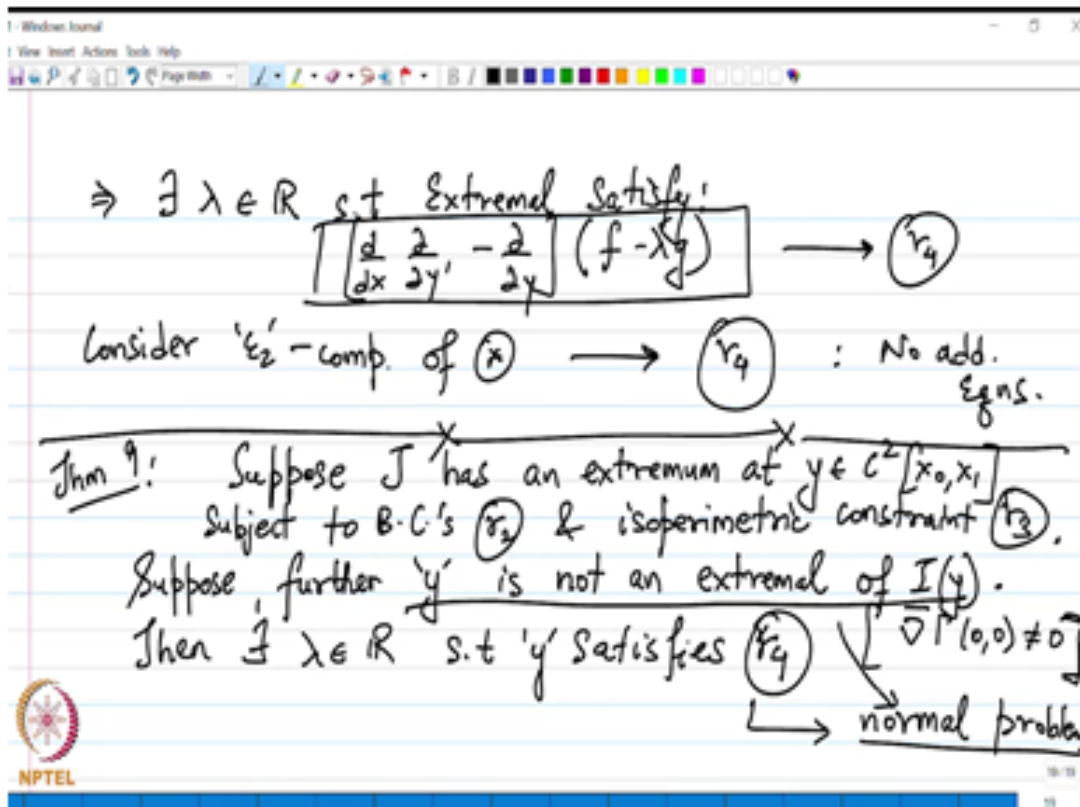 - Windows Journal
View Insert Actions Tools Help
Page Width
B I
⇒ ∃ λ ∈ ℝ s.t Extremal Satisfy:
[d/dx ∂/∂y' - ∂/∂y] (f - λg) → (r₄)
Consider 'ε₂' - comp. of (*) → (r₄) : No add.
Eqns.
Thm 9: Suppose J has an extremum at y ∈ C² [x₀, x₁]
Subject to B.C.'s (r₂) & isoperimetric constraint (r₃).
Suppose, further 'y' is not an extremal of I(y).
Then ∃ λ ∈ ℝ s.t 'y' Satisfies (r₄) [∇̄ Γ (0,0) ≠ 0]
→ normal proble
NPTEL